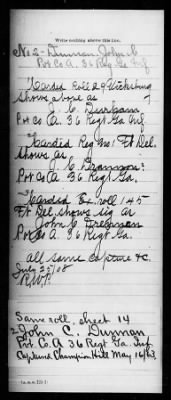 Write nothing above this line.
No 2 - Dunnan, John C
Pvt Co A. 36 Reg Ga Inf
Carded Roll 29 Vicksburg
shows above as
J. C. Durham
Pvt Co A. 36 Regt Ga Inf
Carded Reg No 1. Ft Del.
shows as
J. C. Drannon
Pvt Co A 36 Regt Ga.
Carded Ex. roll 145
Ft Del. shows sig as
John C Drennan
Pvt Co A 36 Regt Ga.
all same capture &c.
R.W.P.
Same roll. sheet 14
2 John C. Dunnan
Pvt Co. A 36 Regt Ga. Inf
Captured Champion Hill May 16/63.